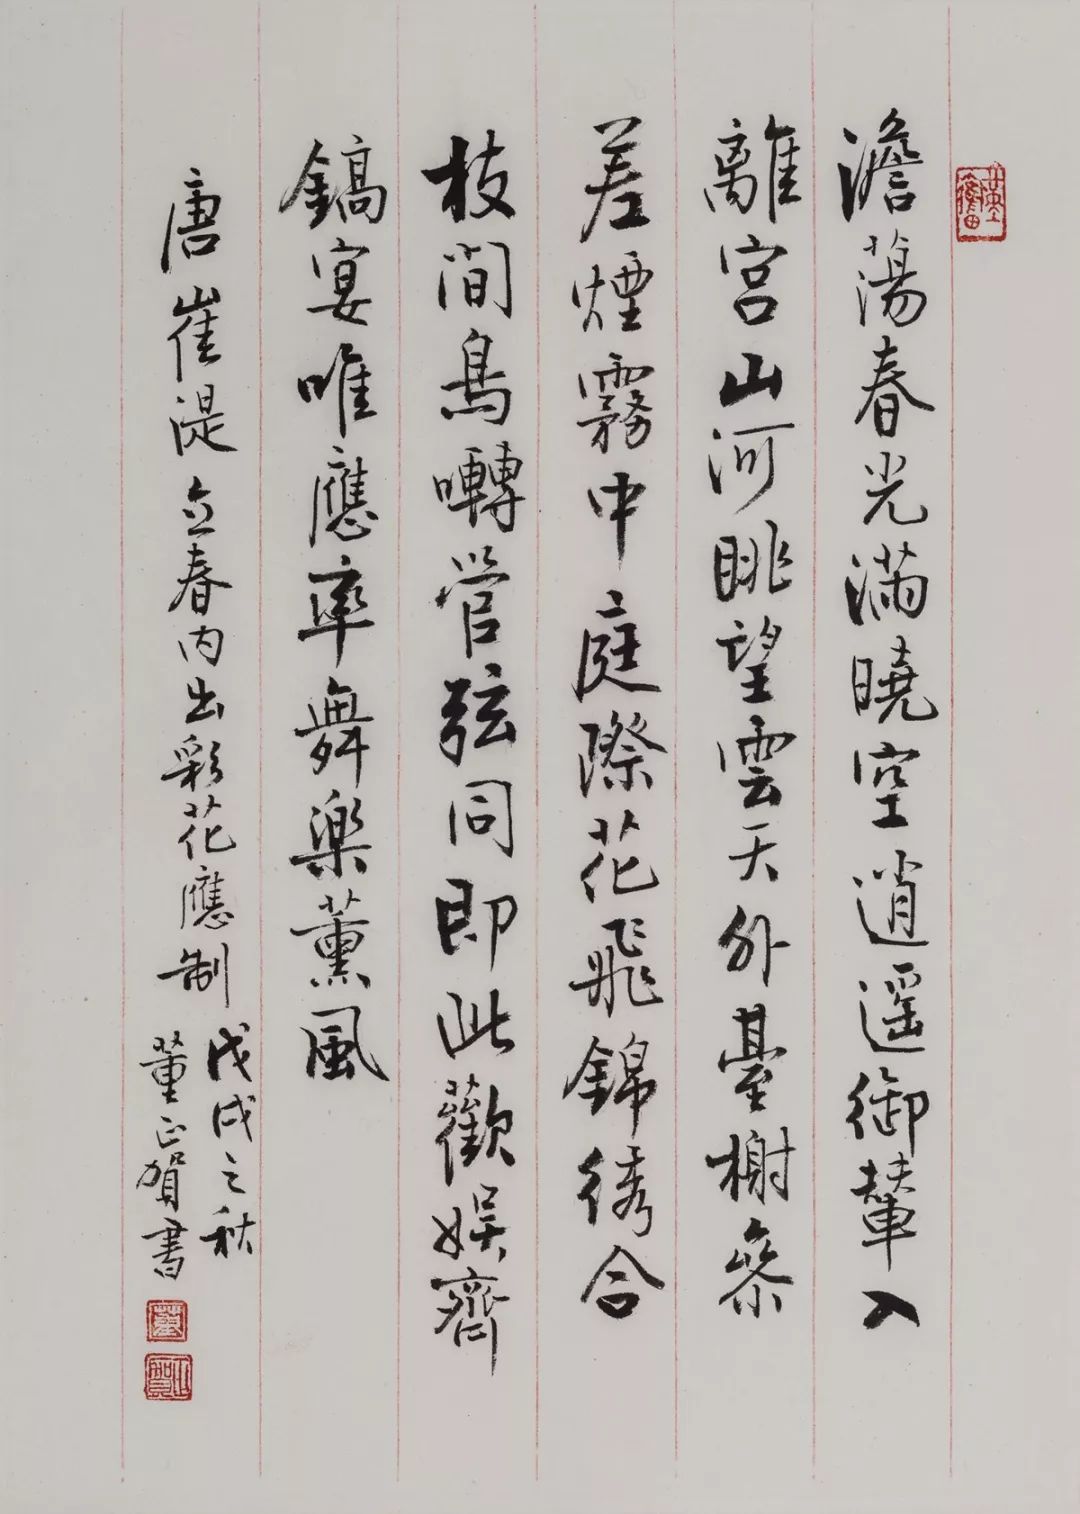 澹蕩春光滿曉空逍遥御輦入
離宮山河眺望雲天外臺榭叅
差煙霧中庭際花飛錦绣合
枝間鳥囀管弦同即此歡娛齊
鎬宴唯應率舞樂薰風
唐崔湜立春内出彩花應制
戊戌之秋
董正賀書
董
正賀